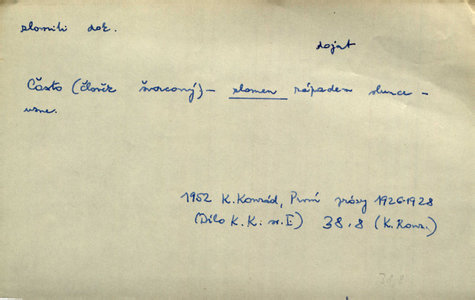 zlomiti dok.
dojat
Často (člověk švorcový) – zlomen západem slunce –
usne.
1952 K. Konrád, První prózy 1926-1928
(Dílo K. K. sv. I) 38,8 (K. Konr.)